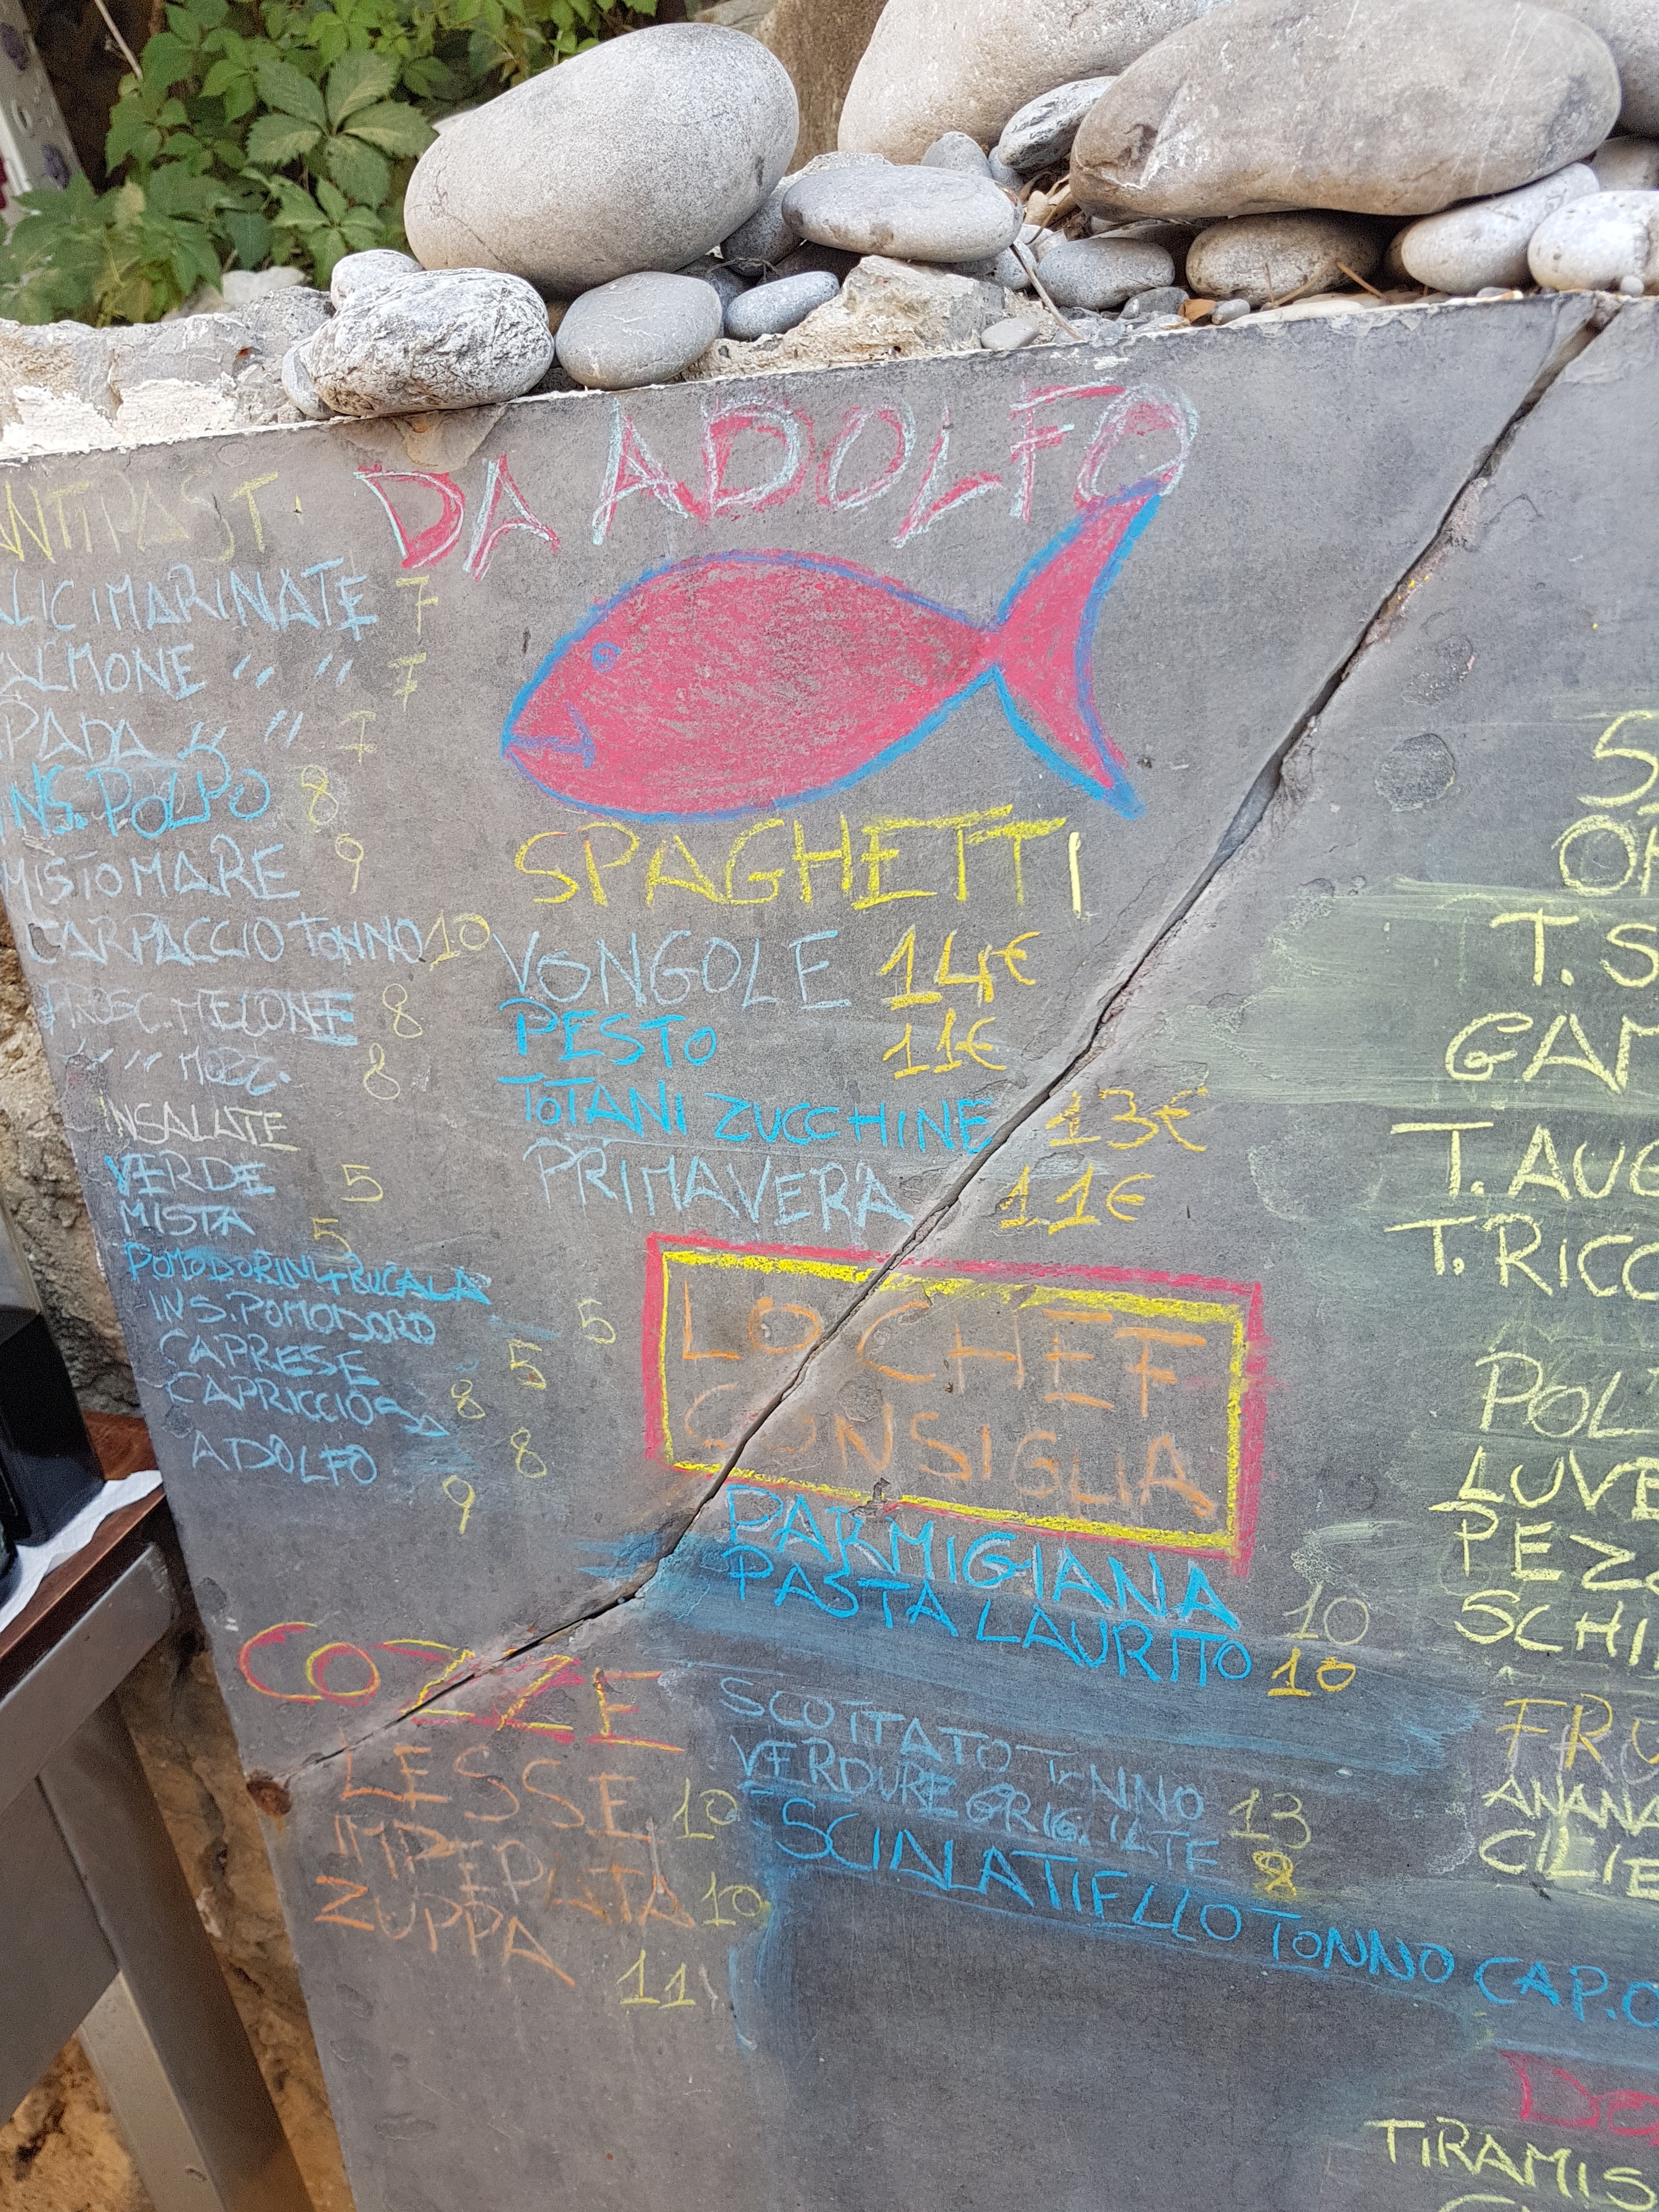 DA ADOLFO
ANTIPASTI
ALICI MARINATE 7
SALMONE " " 7
SPADA " " 7
INS. POLPO 8
MISTO MARE 9
CARPACCIO TONNO 10
PROSC. MELONE 8
" " MOZZ. 8
INSALATE
VERDE 5
MISTA 5
POMODORINI+RUCALA 5
INS. POMODORO 5
CAPRESE 8
CAPRICCIOSA 8
ADOLFO 9
COZZE
LESSE 10
IMPEPATA 10
ZUPPA 11
SPAGHETTI
VONGOLE 14€
PESTO 11€
TOTANI ZUCCHINE 13€
PRIMAVERA 11€
LO CHEF
CONSIGLIA
PARMIGIANA 10
PASTA LAURITO 10
SCOTTATO TONNO 13
VERDURE GRIGLIATE 8
SCIALATIELLO TONNO CAP.
T. S
GAM
T. AUG
T. RICC
POL
LUVE
PEZ
SCHI
FRU
ANANA
CILIE
DO
TIRAMIS